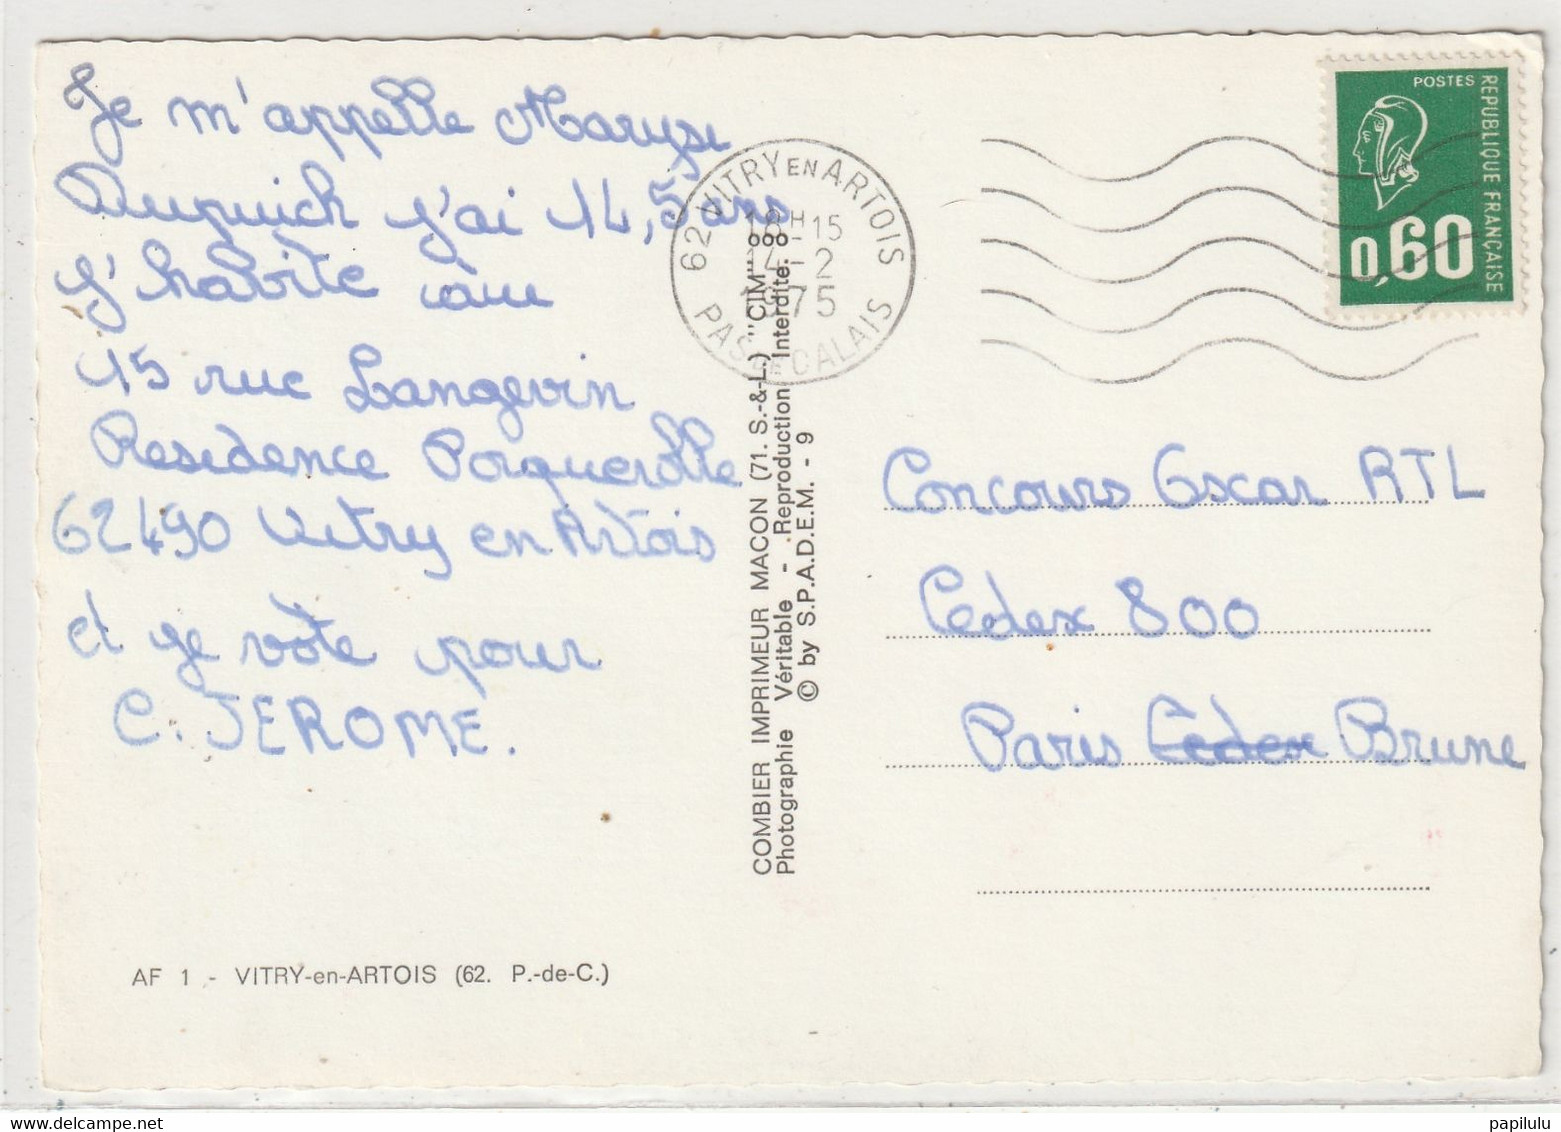 Je m'appelle Maryse
Dupuich j'ai 14,5 ans
j'habite au
15 rue Langevin
Residence Porquerolle
62490 Vitry en Artois
et je vote pour
C. JEROME.
AF 1 - VITRY-en-ARTOIS (62. P.-de-C.)
COMBIER IMPRIMEUR MACON (71. S.-&-L.) "CIM"
Photographie Véritable - Reproduction Interdite.
© by S.P.A.D.E.M. - 9
62 VITRY EN ARTOIS
18H15
14-2
1975
PAS DE CALAIS
POSTES
REPUBLIQUE FRANÇAISE
0,60
Concours Oscar RTL
Cedex 800
Paris Cedex Brune
www.delcampe.net
papilulu